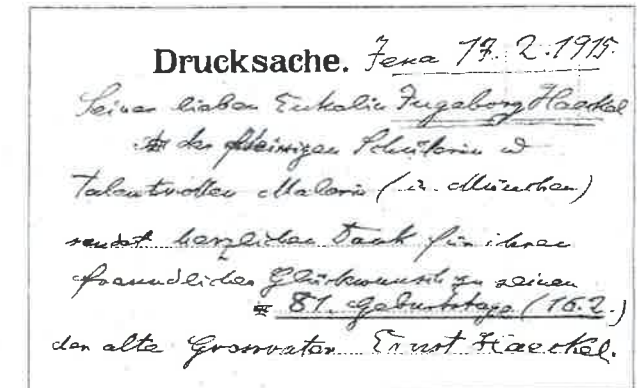 Drucksache. Jena 17. 2. 1915.
Seiner lieben Enkelin Ingeborg Haeckel
der fleissigen Schülerin u
talentvollen Malerin (in München)
sendet herzlichen Dank für ihren
freundlichen Glückwunsch zu seinem
81. Geburtstage (16.2.)
der alte Grossvater Ernst Haeckel.